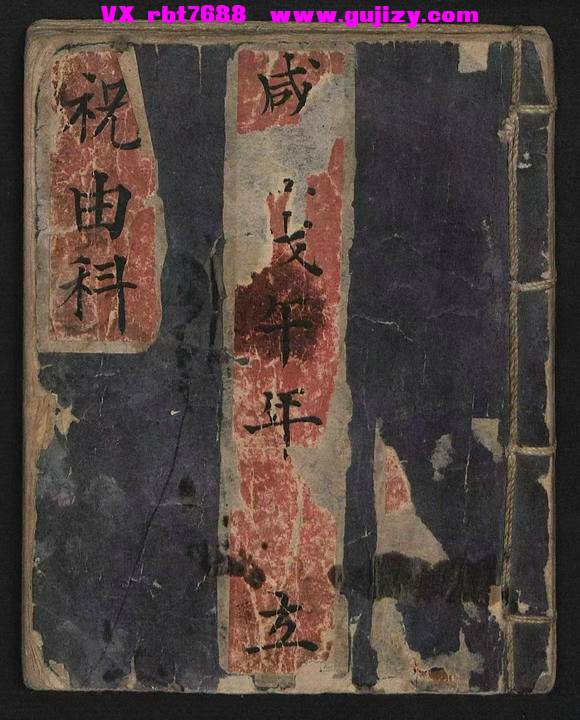 VX rbt7688 www.gujizy.com
祝由科
咸戊午年立